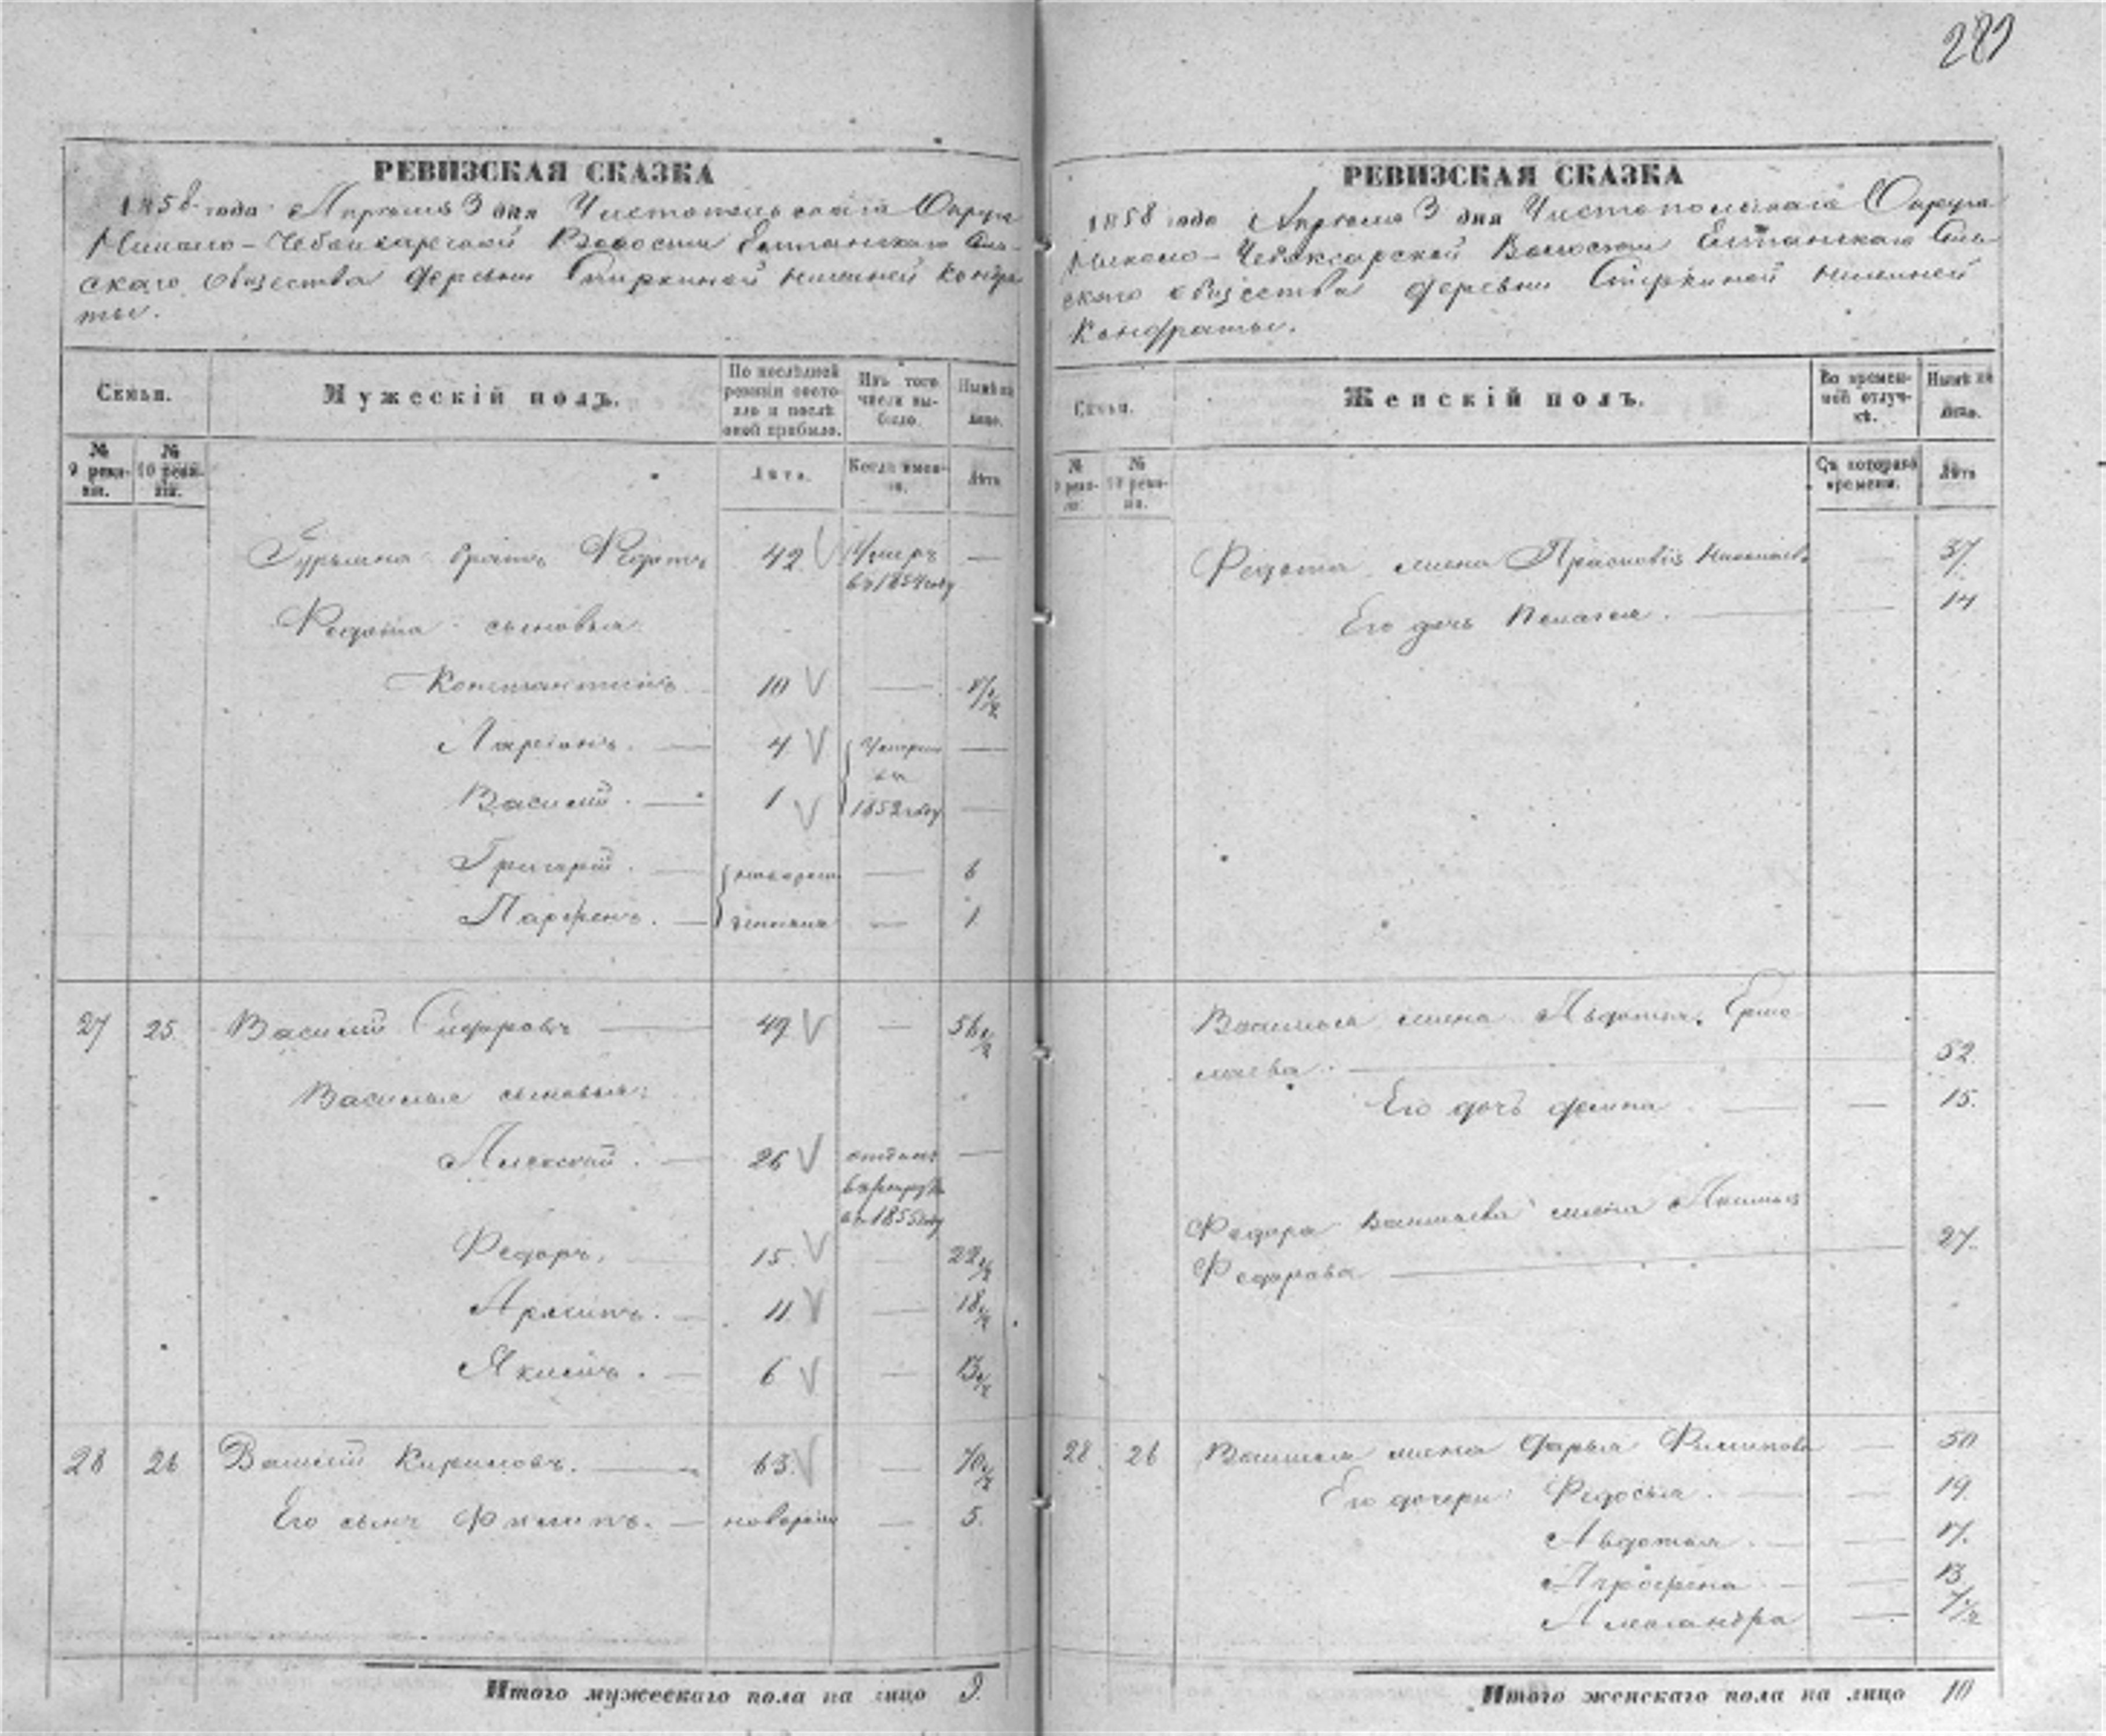 282
РЕВИЗСКАЯ СКАЗКА
1858 года Апреля 3 дня Чистопольскаго Округа
Микало-Чебоксарской Волости Елтанскаго Сель-
скаго общества деревни Спиркиной нижней Кондра
ты.
Семьи.
Мужескій полъ.
По послѣдней ревизіи состояло и послѣ оной прибыло.
Изъ того числа выбыло.
Нынѣ на лицо.
№ 9 ревизіи.
№ 10 ревизіи.
Лѣта.
Когда именно.
Лѣта
Гурьяна братъ Федотъ 42 Умеръ —
въ 1854 году
Федота сыновья
Константинъ 10 — 17 1/2
Ларіонъ. — 4 Умерли —
въ
Василій. — 1 1852 году —
Григорій. — новорож — 6
Парфенъ. — денные — 1
27 25 Василій Сидоровъ — 49 — 56 1/2
Василья сыновья:
Алексей. — 26 отданъ —
въ рекруты
въ 1855 году
Федоръ. 15 — 22 1/2
Архипъ. — 11 — 18 1/2
Якимъ. — 6 — 13 1/2
28 26 Василій Кириловъ. — 63 — 70 1/2
Его сынъ Филипъ. — новорож — 5.
Итого мужескаго пола на лицо 9.
РЕВИЗСКАЯ СКАЗКА
1858 года Апреля 3 дня Чистопольскаго Округа
Микало-Чебоксарской Волости Елтанскаго Сель-
скаго общества деревни Спиркиной нижней
Кондраты.
Семьи.
Женскій полъ.
Во временной отлучкѣ.
Нынѣ на лицо.
№ 9 ревизіи.
№ 10 ревизіи.
Съ котораго времени.
Лѣта
Федота жена Прасковія — 37.
Его дочь Пелагея. — 14
Василья жена Авдотья Ермо
лаева. — 52.
Его дочь Домна — 15.
Федора Васильева жена
Федорова — 27.
28 26 Василья жена Дарья Филипова — 50
Его дочери Федосья. — 19.
Авдотья. — 17.
Аграфена — 13
Александра — 1/2
Итого женскаго пола на лицо 10